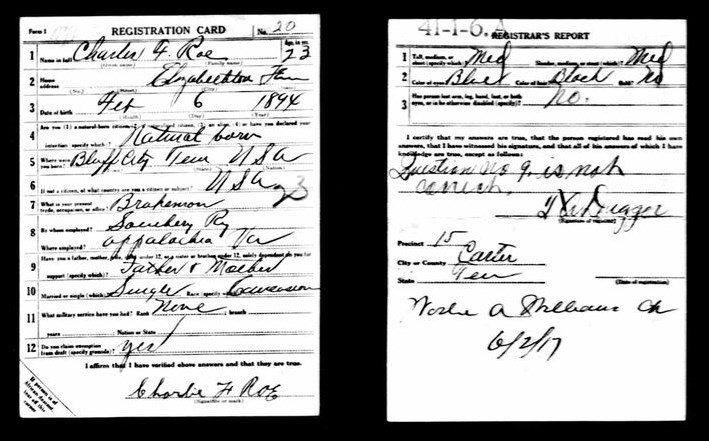 Form 1 REGISTRATION CARD No. 20
1 Name in full Charles F. Roe Age, in yrs. 23
(Given name) (Family name)
2 Home address Elizabethton Tenn
(No.) (Street) (City) (State)
3 Date of birth Feb 6 1894
(Month) (Day) (Year)
4 Are you (1) a natural-born citizen, (2) a naturalized citizen, (3) an alien, (4) or have you declared your
intention (specify which)? Natural born
5 Where were you born? Bluff City Tenn USA
6 If not a citizen, of what country are you a citizen or subject? USA
7 What is your present trade, occupation, or office? Brakeman 23
8 By whom employed? Southern Ry
Where employed? Appalachia Va
9 Have you a father, mother, wife, child under 12, or a sister or brother under 12, solely dependent on you for
support (specify which)? Father & Mother
10 Married or single (which)? Single Race (specify which)? Caucasian
11 What military service have you had? Rank None ; branch
years ; Nation or State
12 Do you claim exemption from draft (specify grounds)? Yes
I affirm that I have verified above answers and that they are true.
Charlie F Roe
(Signature or mark)
If person is of
African descent,
tear off this
corner
41-1-6. A
REGISTRAR'S REPORT
1 Tall, medium, or short (specify which)? Med Slender, medium, or stout (which)? Med
2 Color of eyes? Blue Color of hair? Black Bald? No
3 Has person lost arm, leg, hand, foot, or both
eyes, or is he otherwise disabled (specify)? No.
I certify that my answers are true, that the person registered has read his own
answers, that I have witnessed his signature, and that all of his answers of which I
have knowledge are true, except as follows:
Question No 9. is not
correct.
(Signature of registrar)
Precinct 15
City or County Carter
State Tenn
(Date of registration)
A Williams
6/2/17